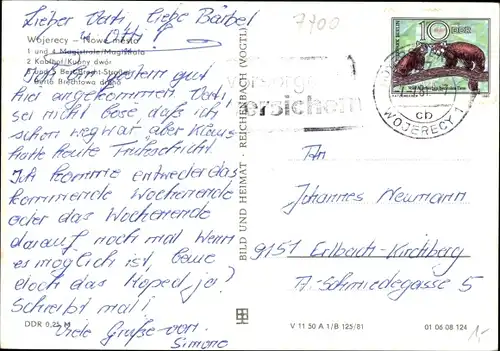 Lieber Vati, liebe Bärbel
u. Otti!
Wojerecy – Nowe město
1 und 4 Magistrale/Magistrala
2 Kaufhof/Kupny dwór
3 und 5 Bert-Brecht-Straße/
Berta Brechtowa dróha
gestern gut
hier angekommen. Vati,
sei nicht böse, daß ich
schon weg war aber Klaus
hatte heute Frühschicht.
Ich komme entweder das
kommende Wochenende
oder das Wochenende
darauf noch mal. Wenn
es möglich ist,
doch das Moped, ja?
Schreibt mal!
Viele Grüße von
Simone
DDR 0,25 M
BILD UND HEIMAT · REICHENBACH (VOGTL)
V 11 50 A 1/B 125/81
01 06 08 124
7700
vorsorgl
versichern
WOJERECY 1
cb
10 DDR
An
Johannes Neumann
9151 Erlbach-Kirchberg
A.-Schmiedegasse 5
1,-